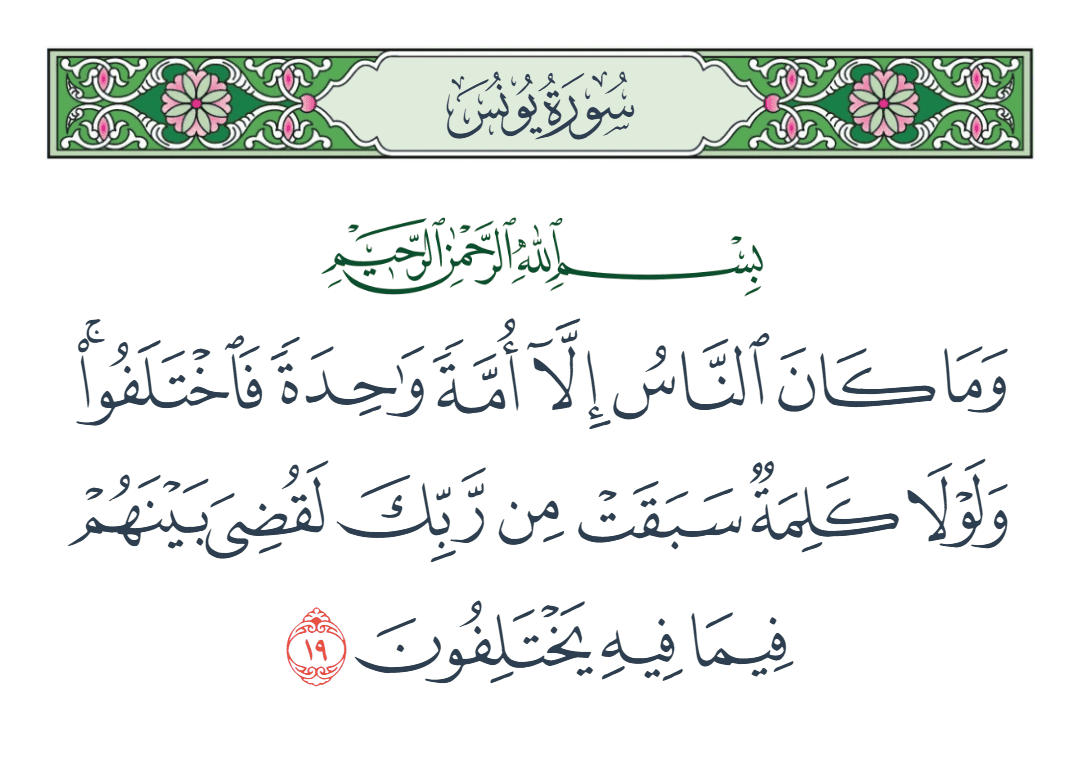 سُورَةُ يُونُسَ
بِسْمِ ٱللَّهِ ٱلرَّحْمَٰنِ ٱلرَّحِيمِ
وَمَا كَانَ ٱلنَّاسُ إِلَّآ أُمَّةً وَٰحِدَةً فَٱخْتَلَفُوا۟ ۚ
وَلَوْلَا كَلِمَةٌ سَبَقَتْ مِن رَّبِّكَ لَقُضِىَ بَيْنَهُمْ
فِيمَا فِيهِ يَخْتَلِفُونَ ١٩